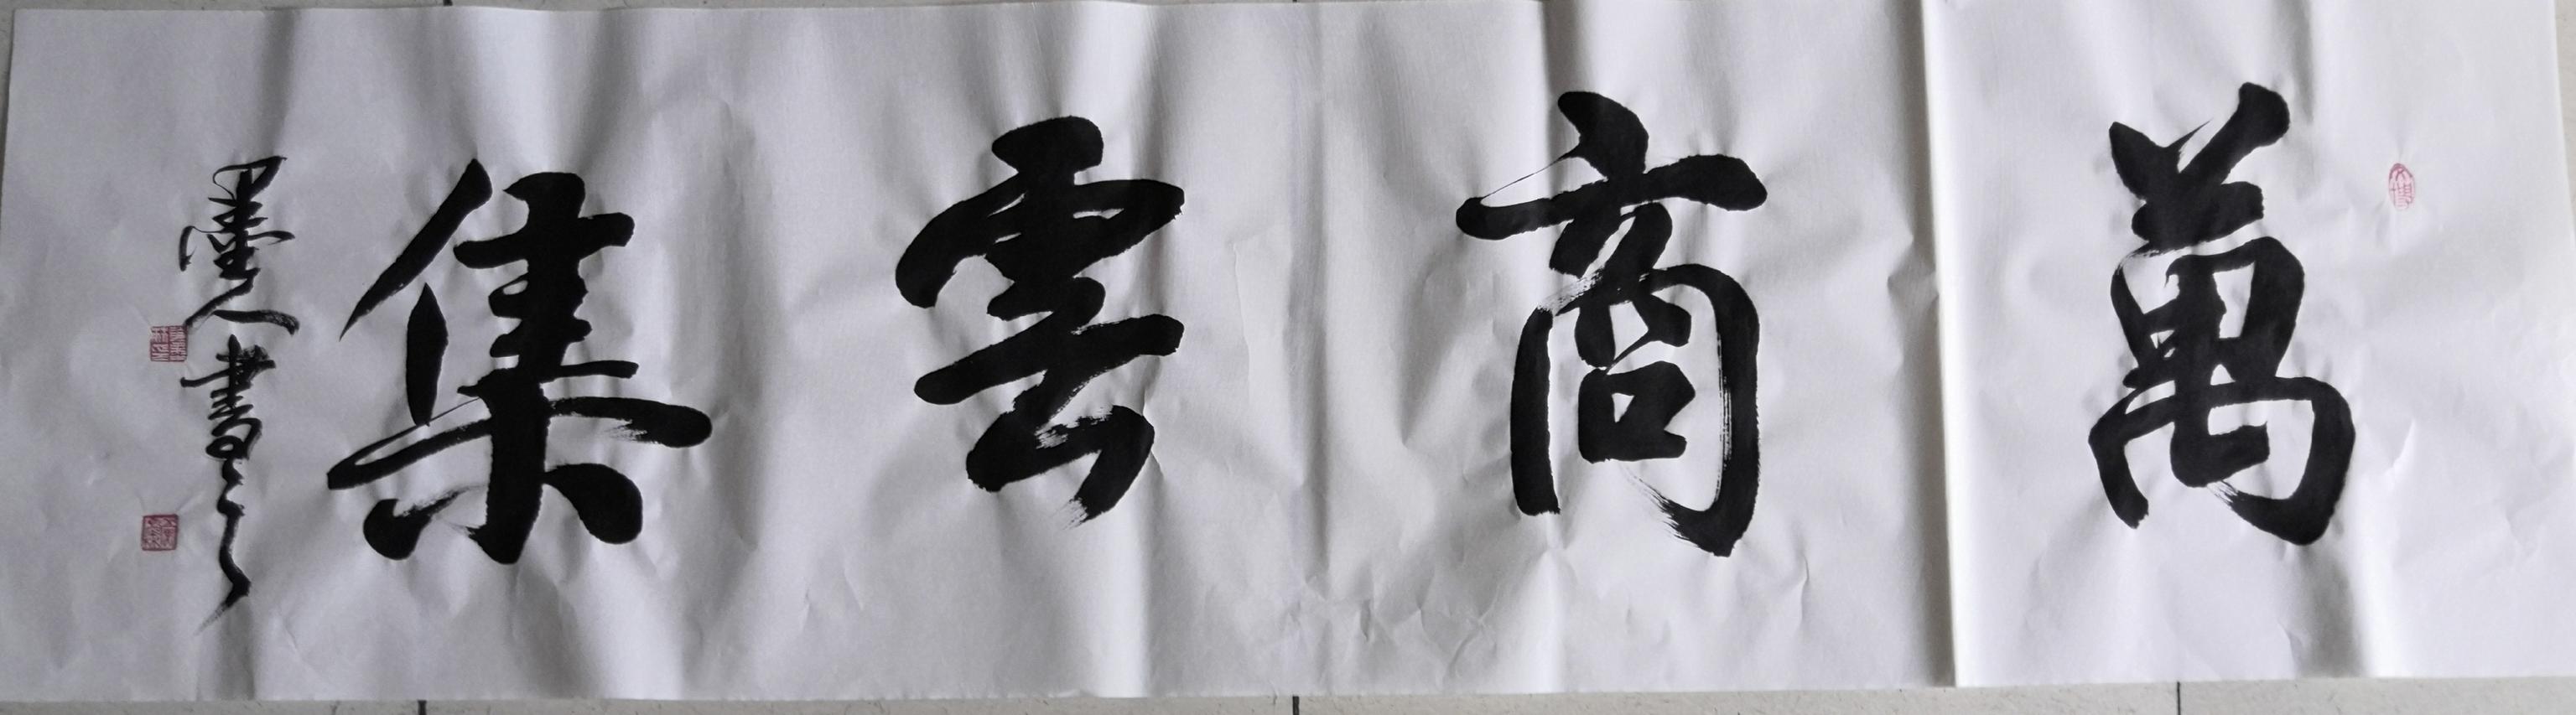 萬商雲集
墨人書之